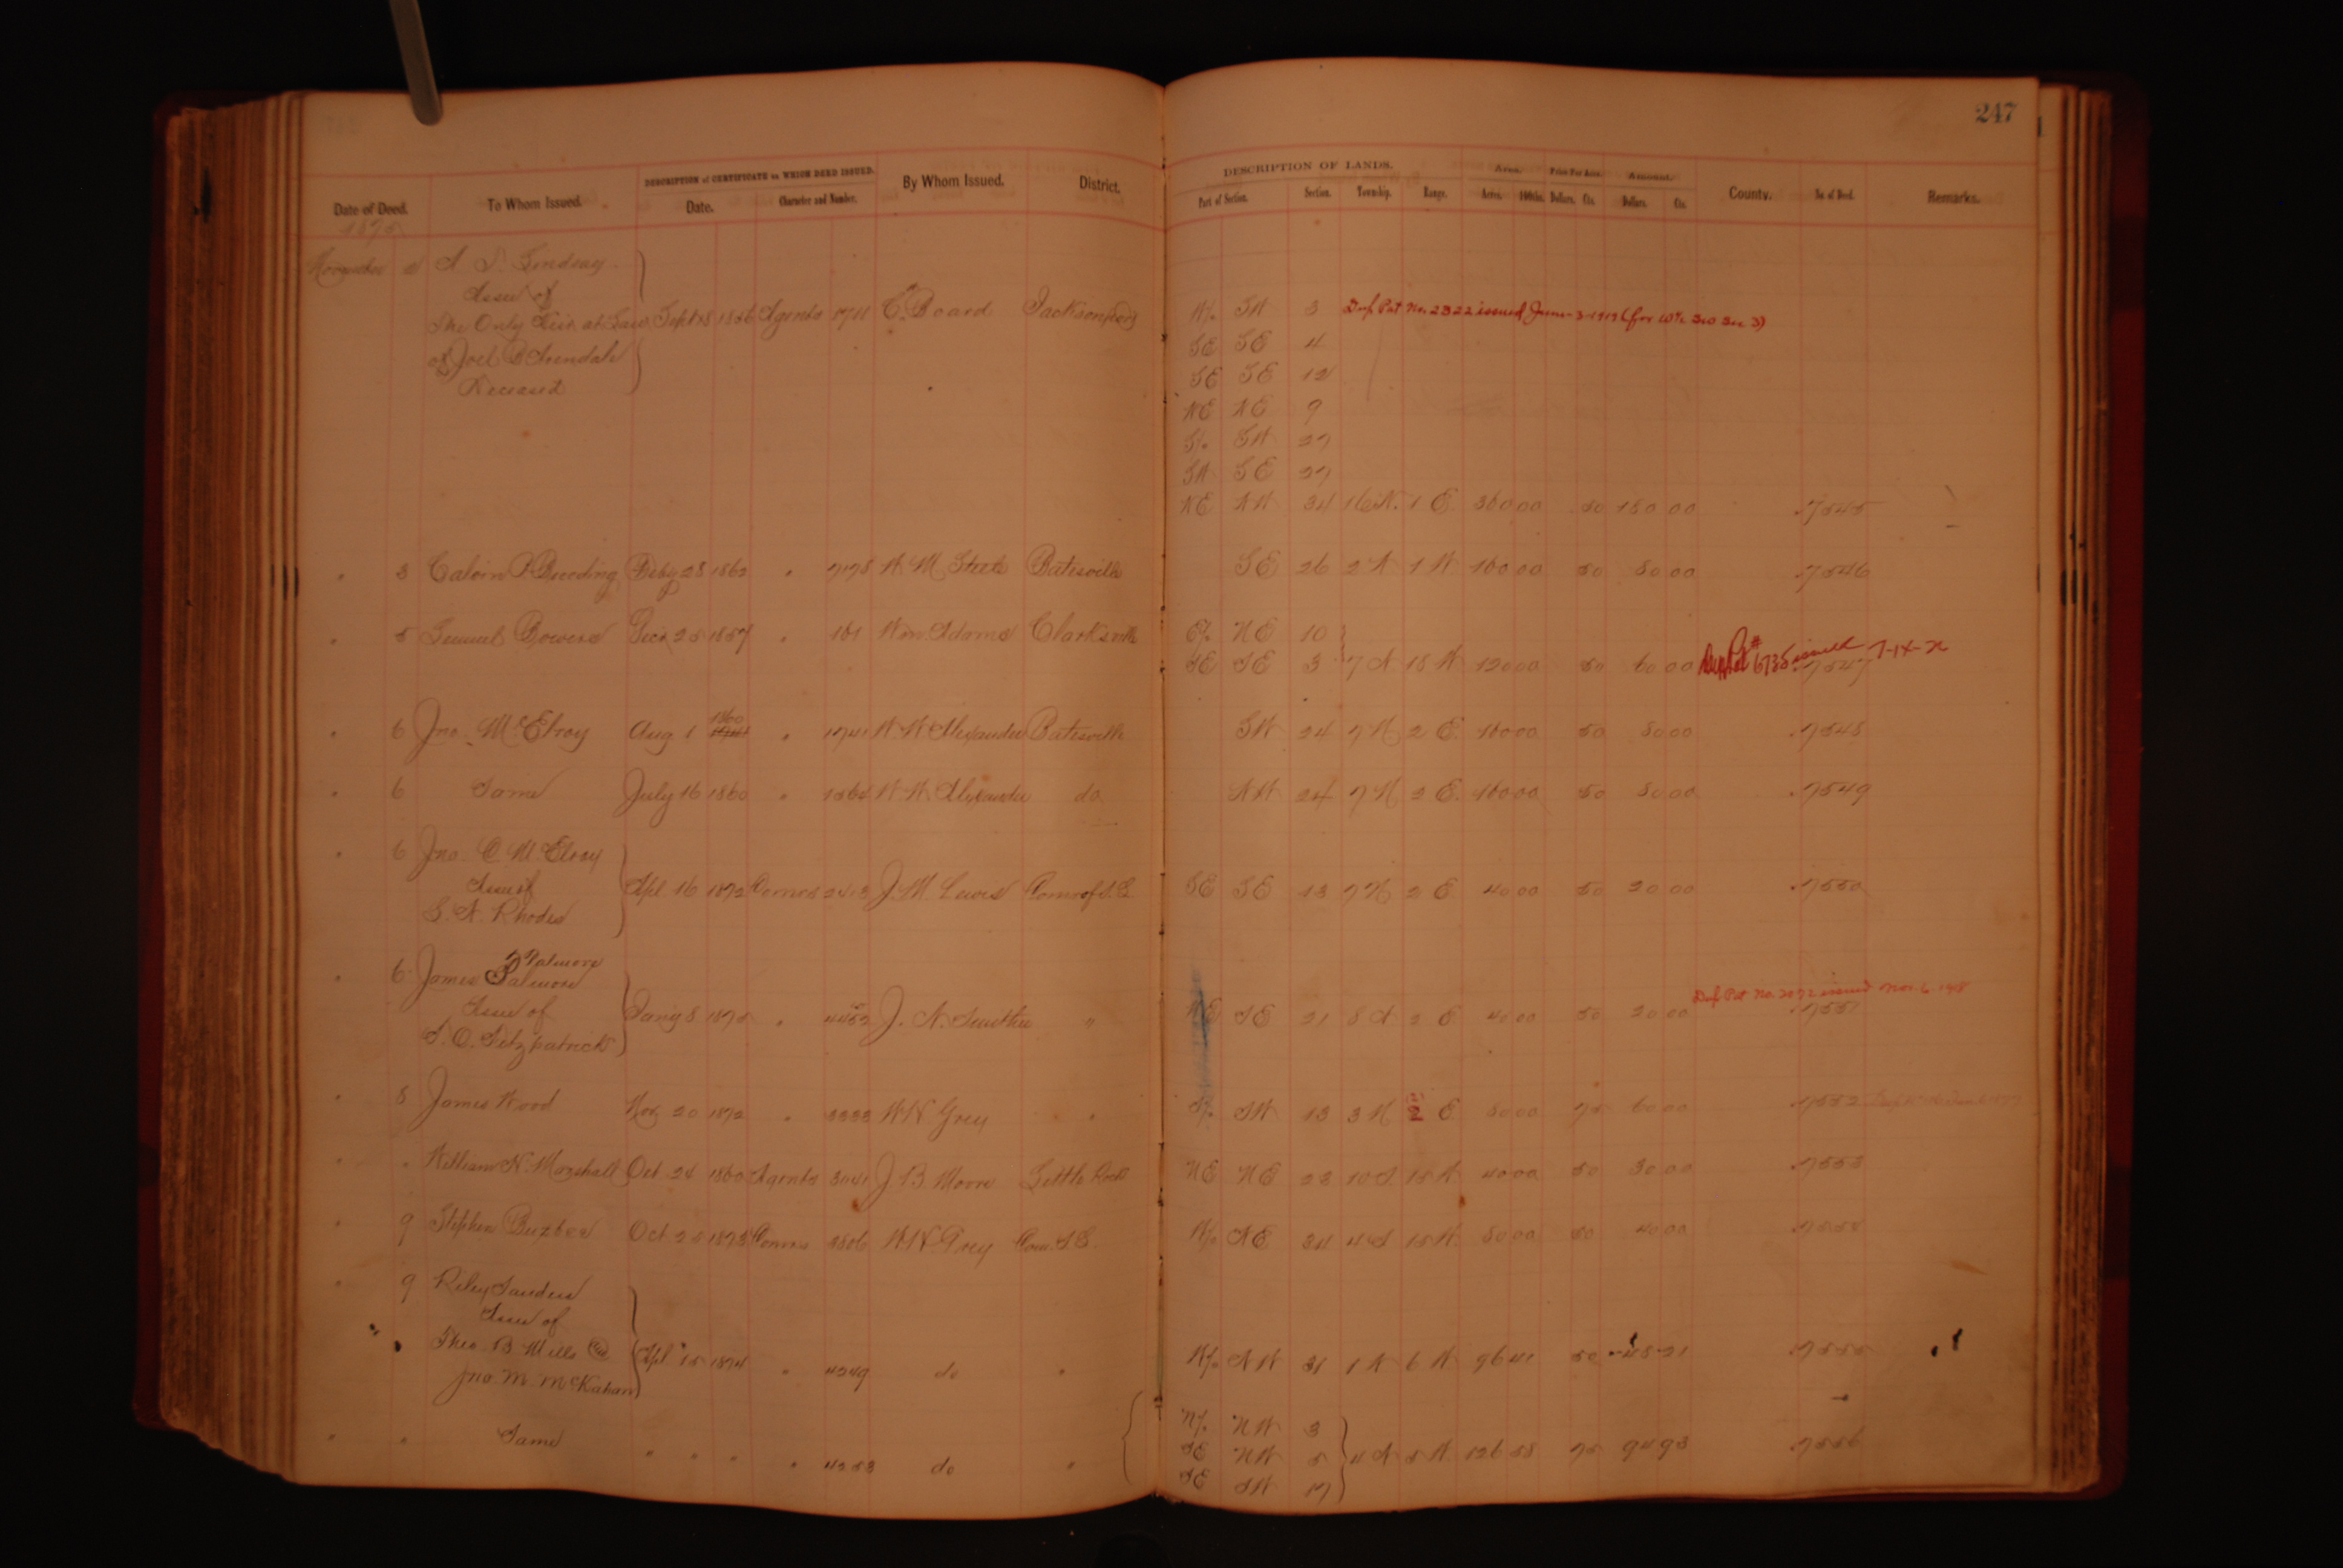 247
DESCRIPTION of CERTIFICATE on WHICH DEED ISSUED.
DESCRIPTION OF LANDS.
Area. Price Per Acre. Amount.
Date of Deed. To Whom Issued. Date. Character and Number. By Whom Issued. District. Part of Section. Section. Township. Range. Acres. 100ths. Dollars. Cts. Dollars. Cts. County. No. of Deed. Remarks.
1875
November 2 A. S. Lindsay
Assee of
The Only Heir at Law Sept 18 1856 Agents 1711 C. Board Jacksonport W½ SW 3 Dup Pat No. 2322 issued June 3-1919 (for W½ SW Sec 3)
of Joel B Arendale SE SE 4
Deceased SE SE 12
NE NE 9
S½ SW 27
SW SE 27
NE NW 34 16 N. 1 E. 360 00 50 180 00 7545
" 3 Calvin P. Breeding Feby 28 1862 " W. M. Steele Batesville SE 26 2 N 1 W. 160 00 50 80 00 7546
" 5 Lemuel Bowers Decr 25 1857 " 161 Wm. Adams Clarksville E½ NE 10
SE SE 3 7 N 18 W 120 00 50 60 00 Dup Pat # 6735 issued 7547
" 6 Jno. McElroy Aug 1 1860 " 1741 W. W. Alexander Batesville SW 24 7 N 2 E. 160 00 50 80 00 7548
" 6 Same July 16 1860 " W. W. Alexander do NW 24 7 N 2 E. 160 00 50 80 00 7549
" 6 Jno. C. McElroy
Assee of Apl. 16 1872 Comrs 2413 J. M. Lewis Comr of S. L. SE SE 13 7 N 2 E 40 00 50 20 00 7550
S. A. Rhodes
Palmore
" 6 James Palmore Dup Pat No. 2072 issued Nov. 6. 1918
Assee of Jany 8 1875 " 4452 J. N. Smithee " NE SE 21 8 N 2 E 40 00 50 20 00 7551
T. O. Fitzpatrick
" 8 James Wood Nov. 20 1872 " 3333 W. H. Grey " SW 13 3 N 2 E 80 00 75 60 00 7552
" " William H. Marshall Oct 24 1860 Agents 3141 J. B. Moore Little Rock NE NE 23 10 S. 15 W. 40 00 50 7553
" 9 Stephen Buzbee Oct 25 1873 Comrs 3806 W. H. Grey Com. S L. W½ NE 34 4 S 15 W. 80 00 50 40 00 7554
" 9 Riley Sanders
Assee of
Theo. B Mills & Co Apl. 15 1874 " 4249 do " W½ NW 31 1 N 6 W 96 41 50 48 21 7555
Jno. M. McKahan
N½ NW 3
" " Same " " " " 4253 do " SE NW 5 4 N 5 W. 126 58 75 94 93 7556
SE SW 17